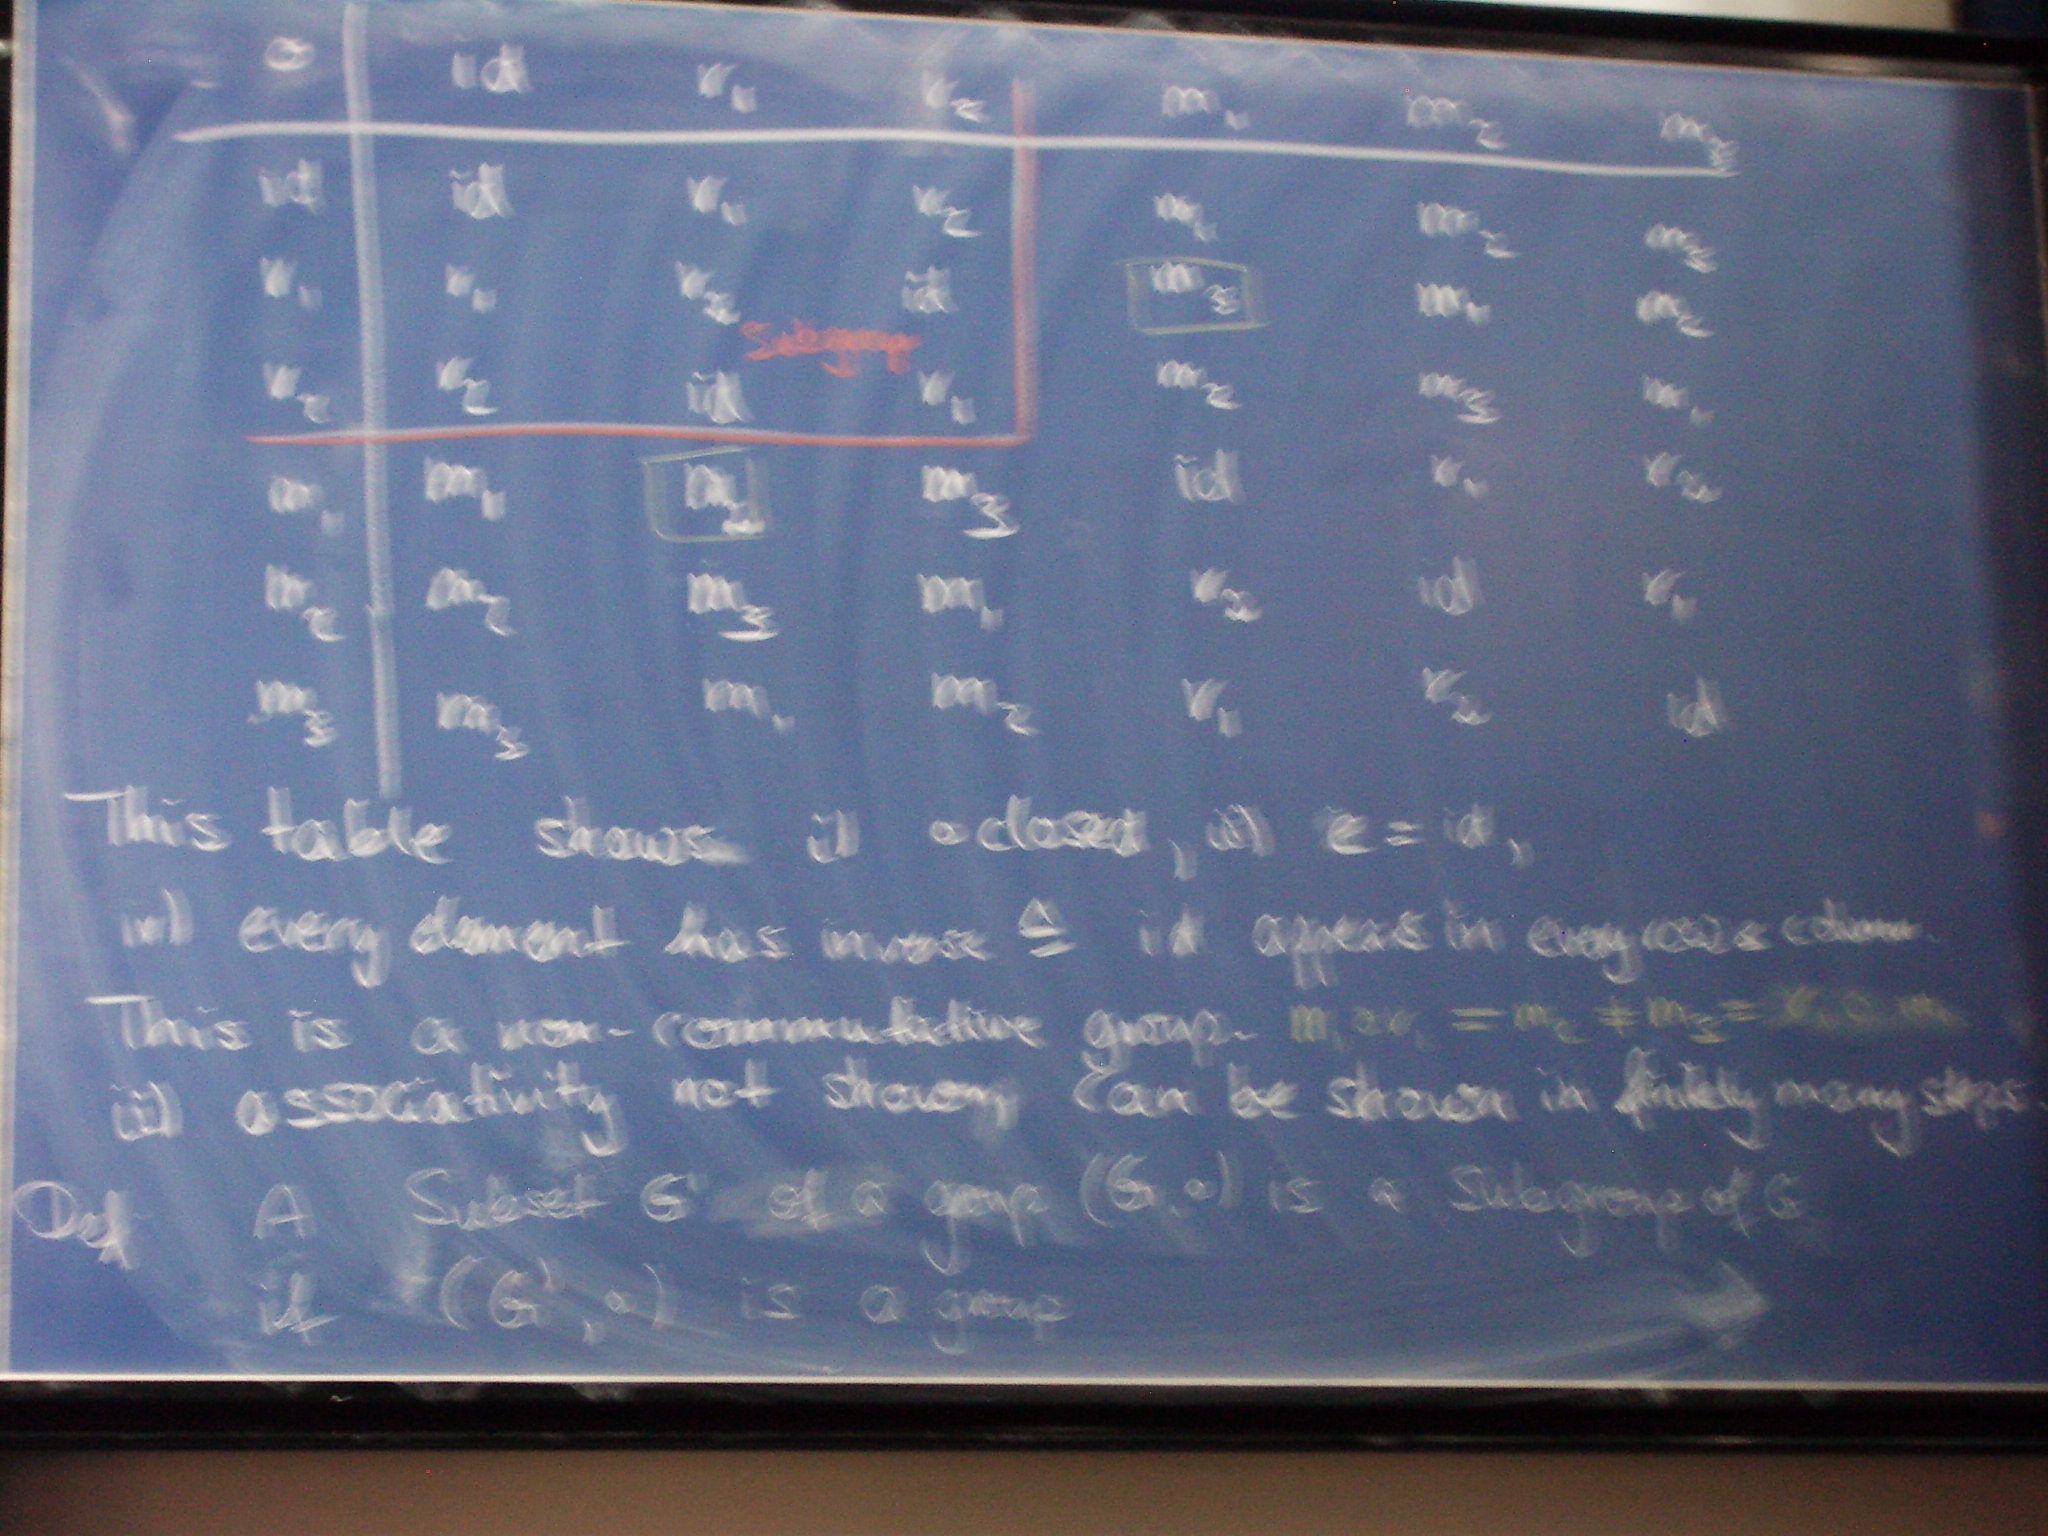 ∘ id r₁ r₂ m₁ m₂ m₃
id id r₁ r₂ m₁ m₂ m₃
r₁ r₁ r₂ id m₃ m₁ m₂
Subgroup
r₂ r₂ id r₁ m₂ m₃ m₁
m₁ m₁ m₂ m₃ id r₁ r₂
m₂ m₂ m₃ m₁ r₂ id r₁
m₃ m₃ m₁ m₂ r₁ r₂ id
This table shows i) ∘ closed, iii) e = id,
iv) every element has inverse ≙ id appears in every row & column.
This is a non-commutative group. m₁∘r₁ = m₂ ≠ m₃ = r₁∘m₁
ii) associativity not shown, can be shown in finitely many steps.
Def A Subset G' of a group (G,∘) is a subgroup of G
if (G',∘) is a group